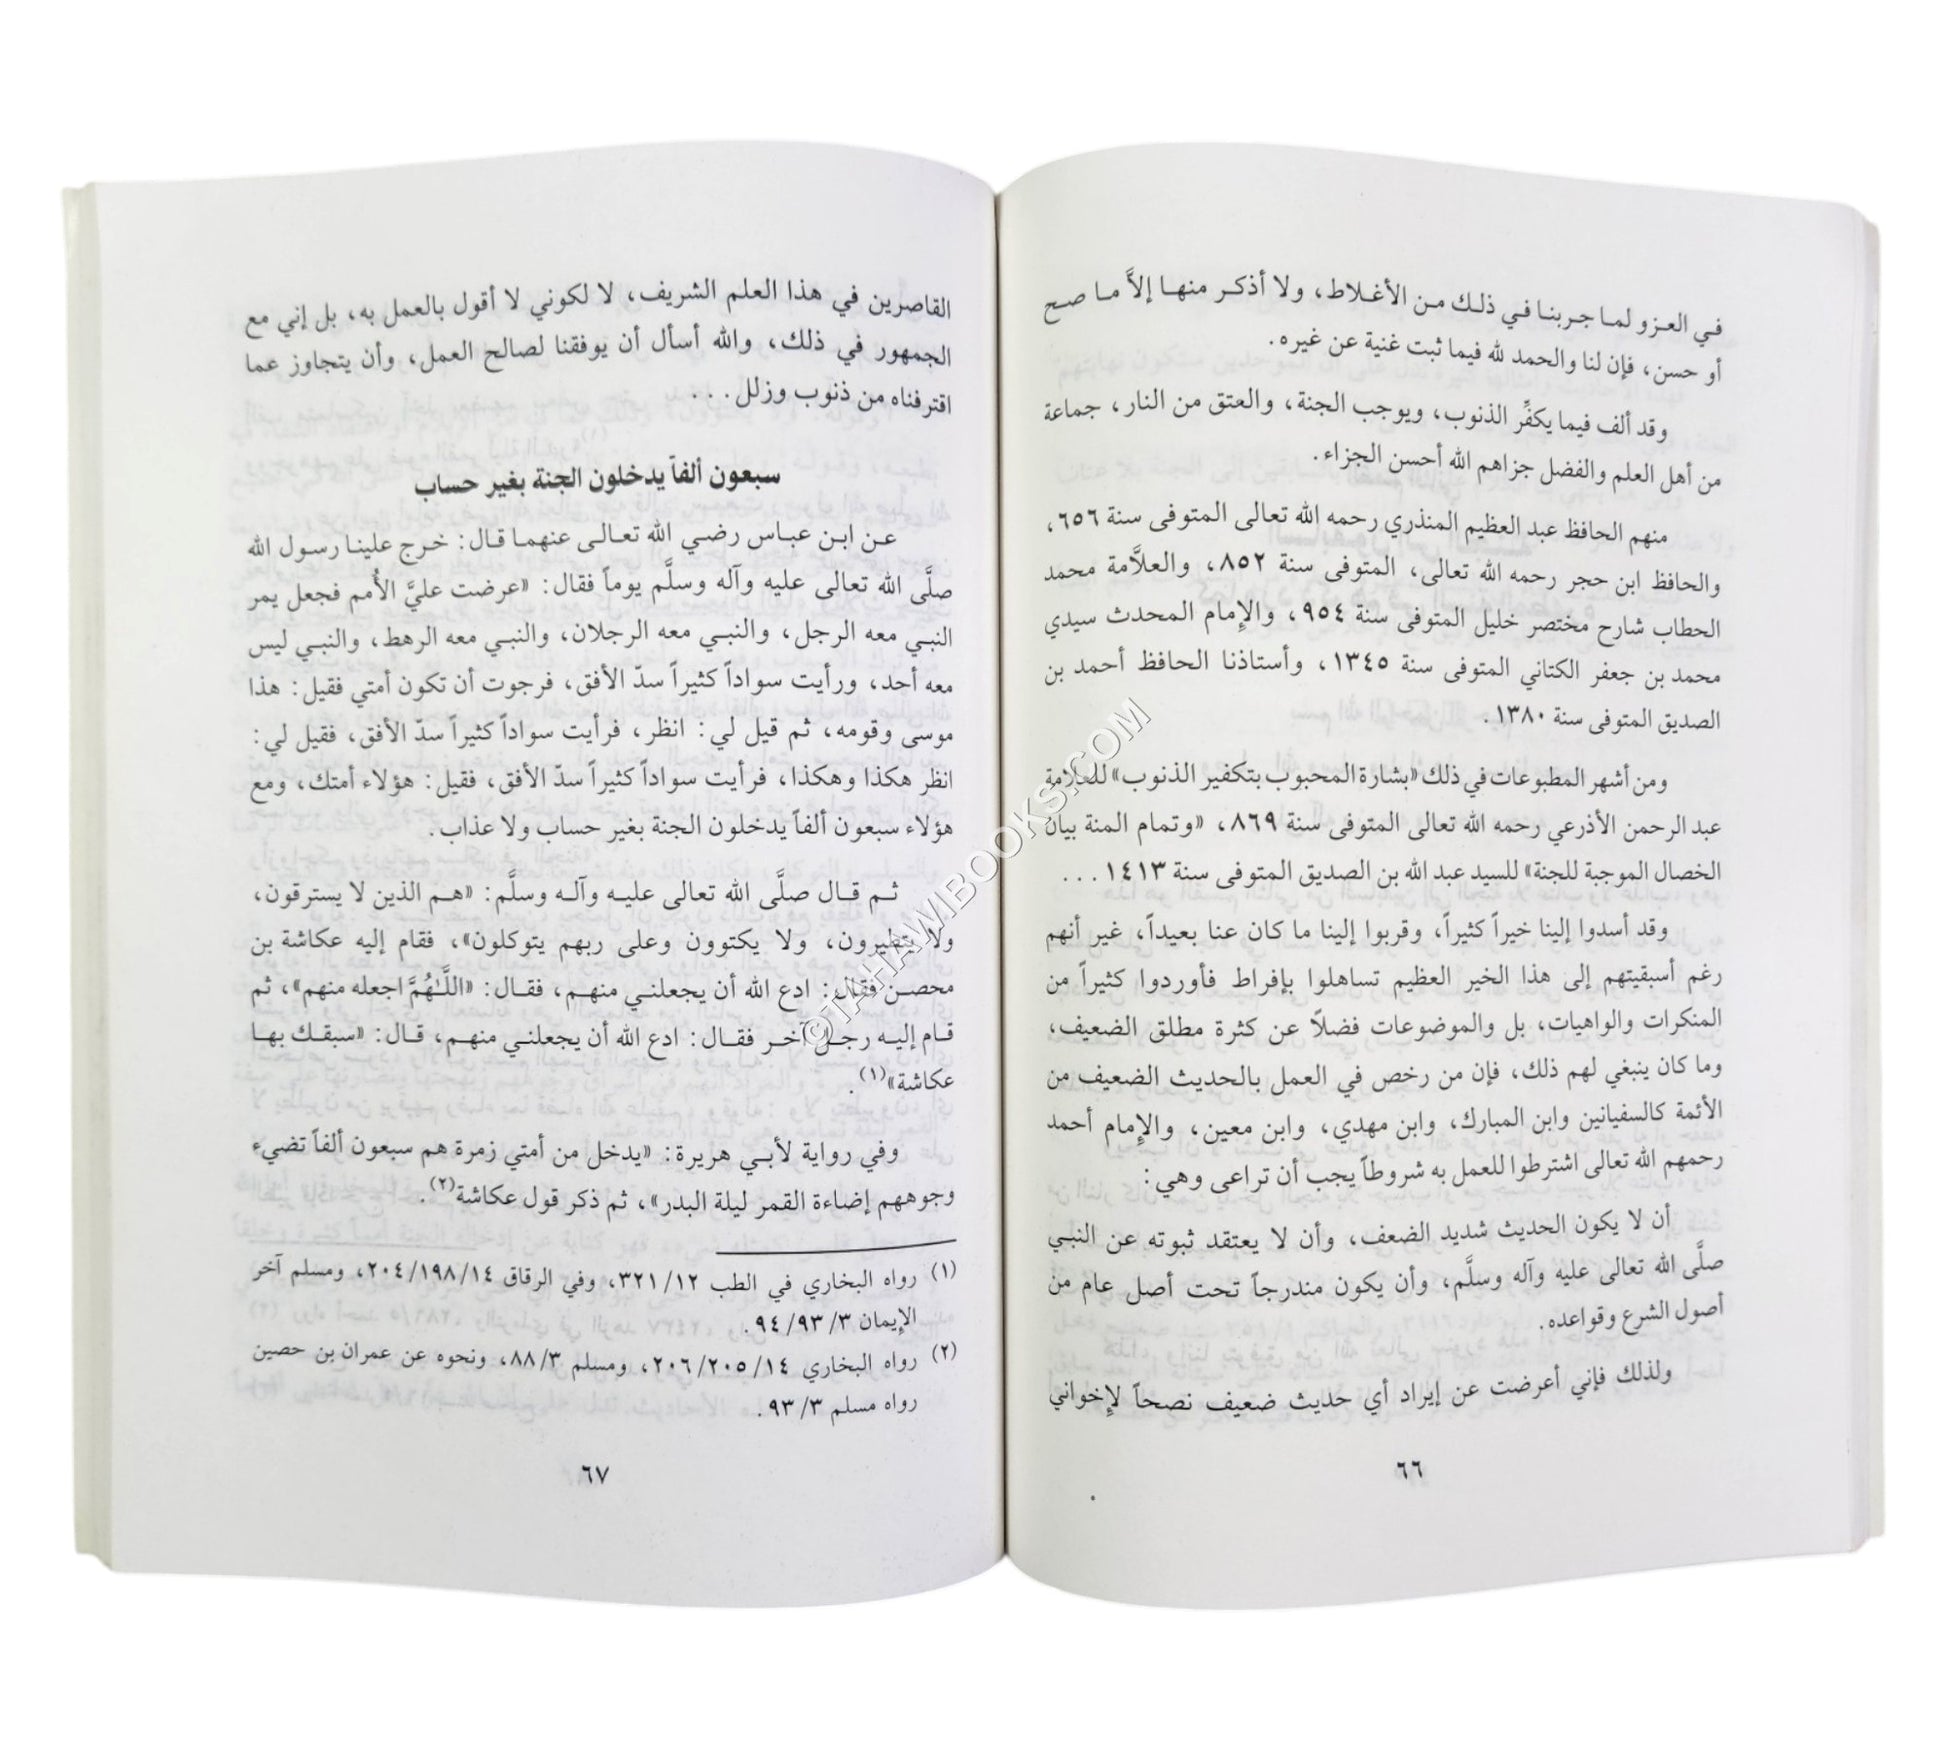 في العزو لما جربنا في ذلك من الأغلاط، ولا أذكر منها إلاَّ ما صح
أو حسن، فإن لنا والحمد لله فيما ثبت غنية عن غيره.
وقد ألف فيما يكفِّر الذنوب، ويوجب الجنة، والعتق من النار، جماعة
من أهل العلم والفضل جزاهم الله أحسن الجزاء.
منهم الحافظ عبد العظيم المنذري رحمه الله تعالى المتوفى سنة ٦٥٦،
والحافظ ابن حجر رحمه الله تعالى، المتوفى سنة ٨٥٢، والعلاَّمة محمد
الحطاب شارح مختصر خليل المتوفى سنة ٩٥٤، والإمام المحدث سيدي
محمد بن جعفر الكتاني المتوفى سنة ١٣٤٥، وأستاذنا الحافظ أحمد بن
الصديق المتوفى سنة ١٣٨٠.
ومن أشهر المطبوعات في ذلك «بشارة المحبوب بتكفير الذنوب» للعلامة
عبد الرحمن الأذرعي رحمه الله تعالى المتوفى سنة ٨٦٩، «وتمام المنة بيان
الخصال الموجبة للجنة» للسيد عبد الله بن الصديق المتوفى سنة ١٤١٣...
وقد أسدوا إلينا خيراً كثيراً، وقربوا إلينا ما كان عنا بعيداً، غير أنهم
رغم أسبقيتهم إلى هذا الخير العظيم تساهلوا بإفراط فأوردوا كثيراً من
المنكرات والواهيات، بل والموضوعات فضلاً عن كثرة مطلق الضعيف،
وما كان ينبغي لهم ذلك، فإن من رخص في العمل بالحديث الضعيف من
الأئمة كالسفيانين وابن المبارك، وابن مهدي، وابن معين، والإمام أحمد
رحمهم الله تعالى اشترطوا للعمل به شروطاً يجب أن تراعى وهي:
أن لا يكون الحديث شديد الضعف، وأن لا يعتقد ثبوته عن النبي
صلَّى الله تعالى عليه وآله وسلَّم، وأن يكون مندرجاً تحت أصل عام من
أصول الشرع وقواعده.
ولذلك فإني أعرضت عن إيراد أي حديث ضعيف نصحاً لإخواني
٦٦
القاصرين في هذا العلم الشريف، لا لكوني لا أقول بالعمل به، بل إني مع
الجمهور في ذلك، والله أسأل أن يوفقنا لصالح العمل، وأن يتجاوز عما
اقترفناه من ذنوب وزلل...
سبعون ألفاً يدخلون الجنة بغير حساب
عن ابن عباس رضي الله تعالى عنهما قال: خرج علينا رسول الله
صلَّى الله تعالى عليه وآله وسلَّم يوماً فقال: «عرضت عليَّ الأُمم فجعل يمر
النبي معه الرجل، والنبي معه الرجلان، والنبي معه الرهط، والنبي ليس
معه أحد، ورأيت سواداً كثيراً سدّ الأفق، فرجوت أن تكون أمتي فقيل: هذا
موسى وقومه، ثم قيل لي: انظر، فرأيت سواداً كثيراً سدّ الأفق، فقيل لي:
انظر هكذا وهكذا، فرأيت سواداً كثيراً سدّ الأفق، فقيل: هؤلاء أمتك، ومع
هؤلاء سبعون ألفاً يدخلون الجنة بغير حساب ولا عذاب.
ثم قال صلَّى الله تعالى عليه وآله وسلَّم: «هم الذين لا يسترقون،
ولا يتطيرون، ولا يكتوون وعلى ربهم يتوكلون»، فقام إليه عكاشة بن
محصن فقال: ادع الله أن يجعلني منهم، فقال: «اللَّهُمَّ اجعله منهم»، ثم
قام إليه رجل آخر فقال: ادع الله أن يجعلني منهم، قال: «سبقك بها
عكاشة»(١).
وفي رواية لأبي هريرة: «يدخل من أمتي زمرة هم سبعون ألفاً تضيء
وجوههم إضاءة القمر ليلة البدر»، ثم ذكر قول عكاشة(٢).
(١) رواه البخاري في الطب ٣٢١/١٢، وفي الرقاق ٢٠٤/١٩٨/١٤، ومسلم آخر
الإيمان ٩٤/٩٣/٣.
(٢) رواه البخاري ٢٠٦/٢٠٥/١٤، ومسلم ٨٨/٣، ونحوه عن عمران بن حصين
رواه مسلم ٩٣/٣.
٦٧
©TAHAWIBOOKS.COM